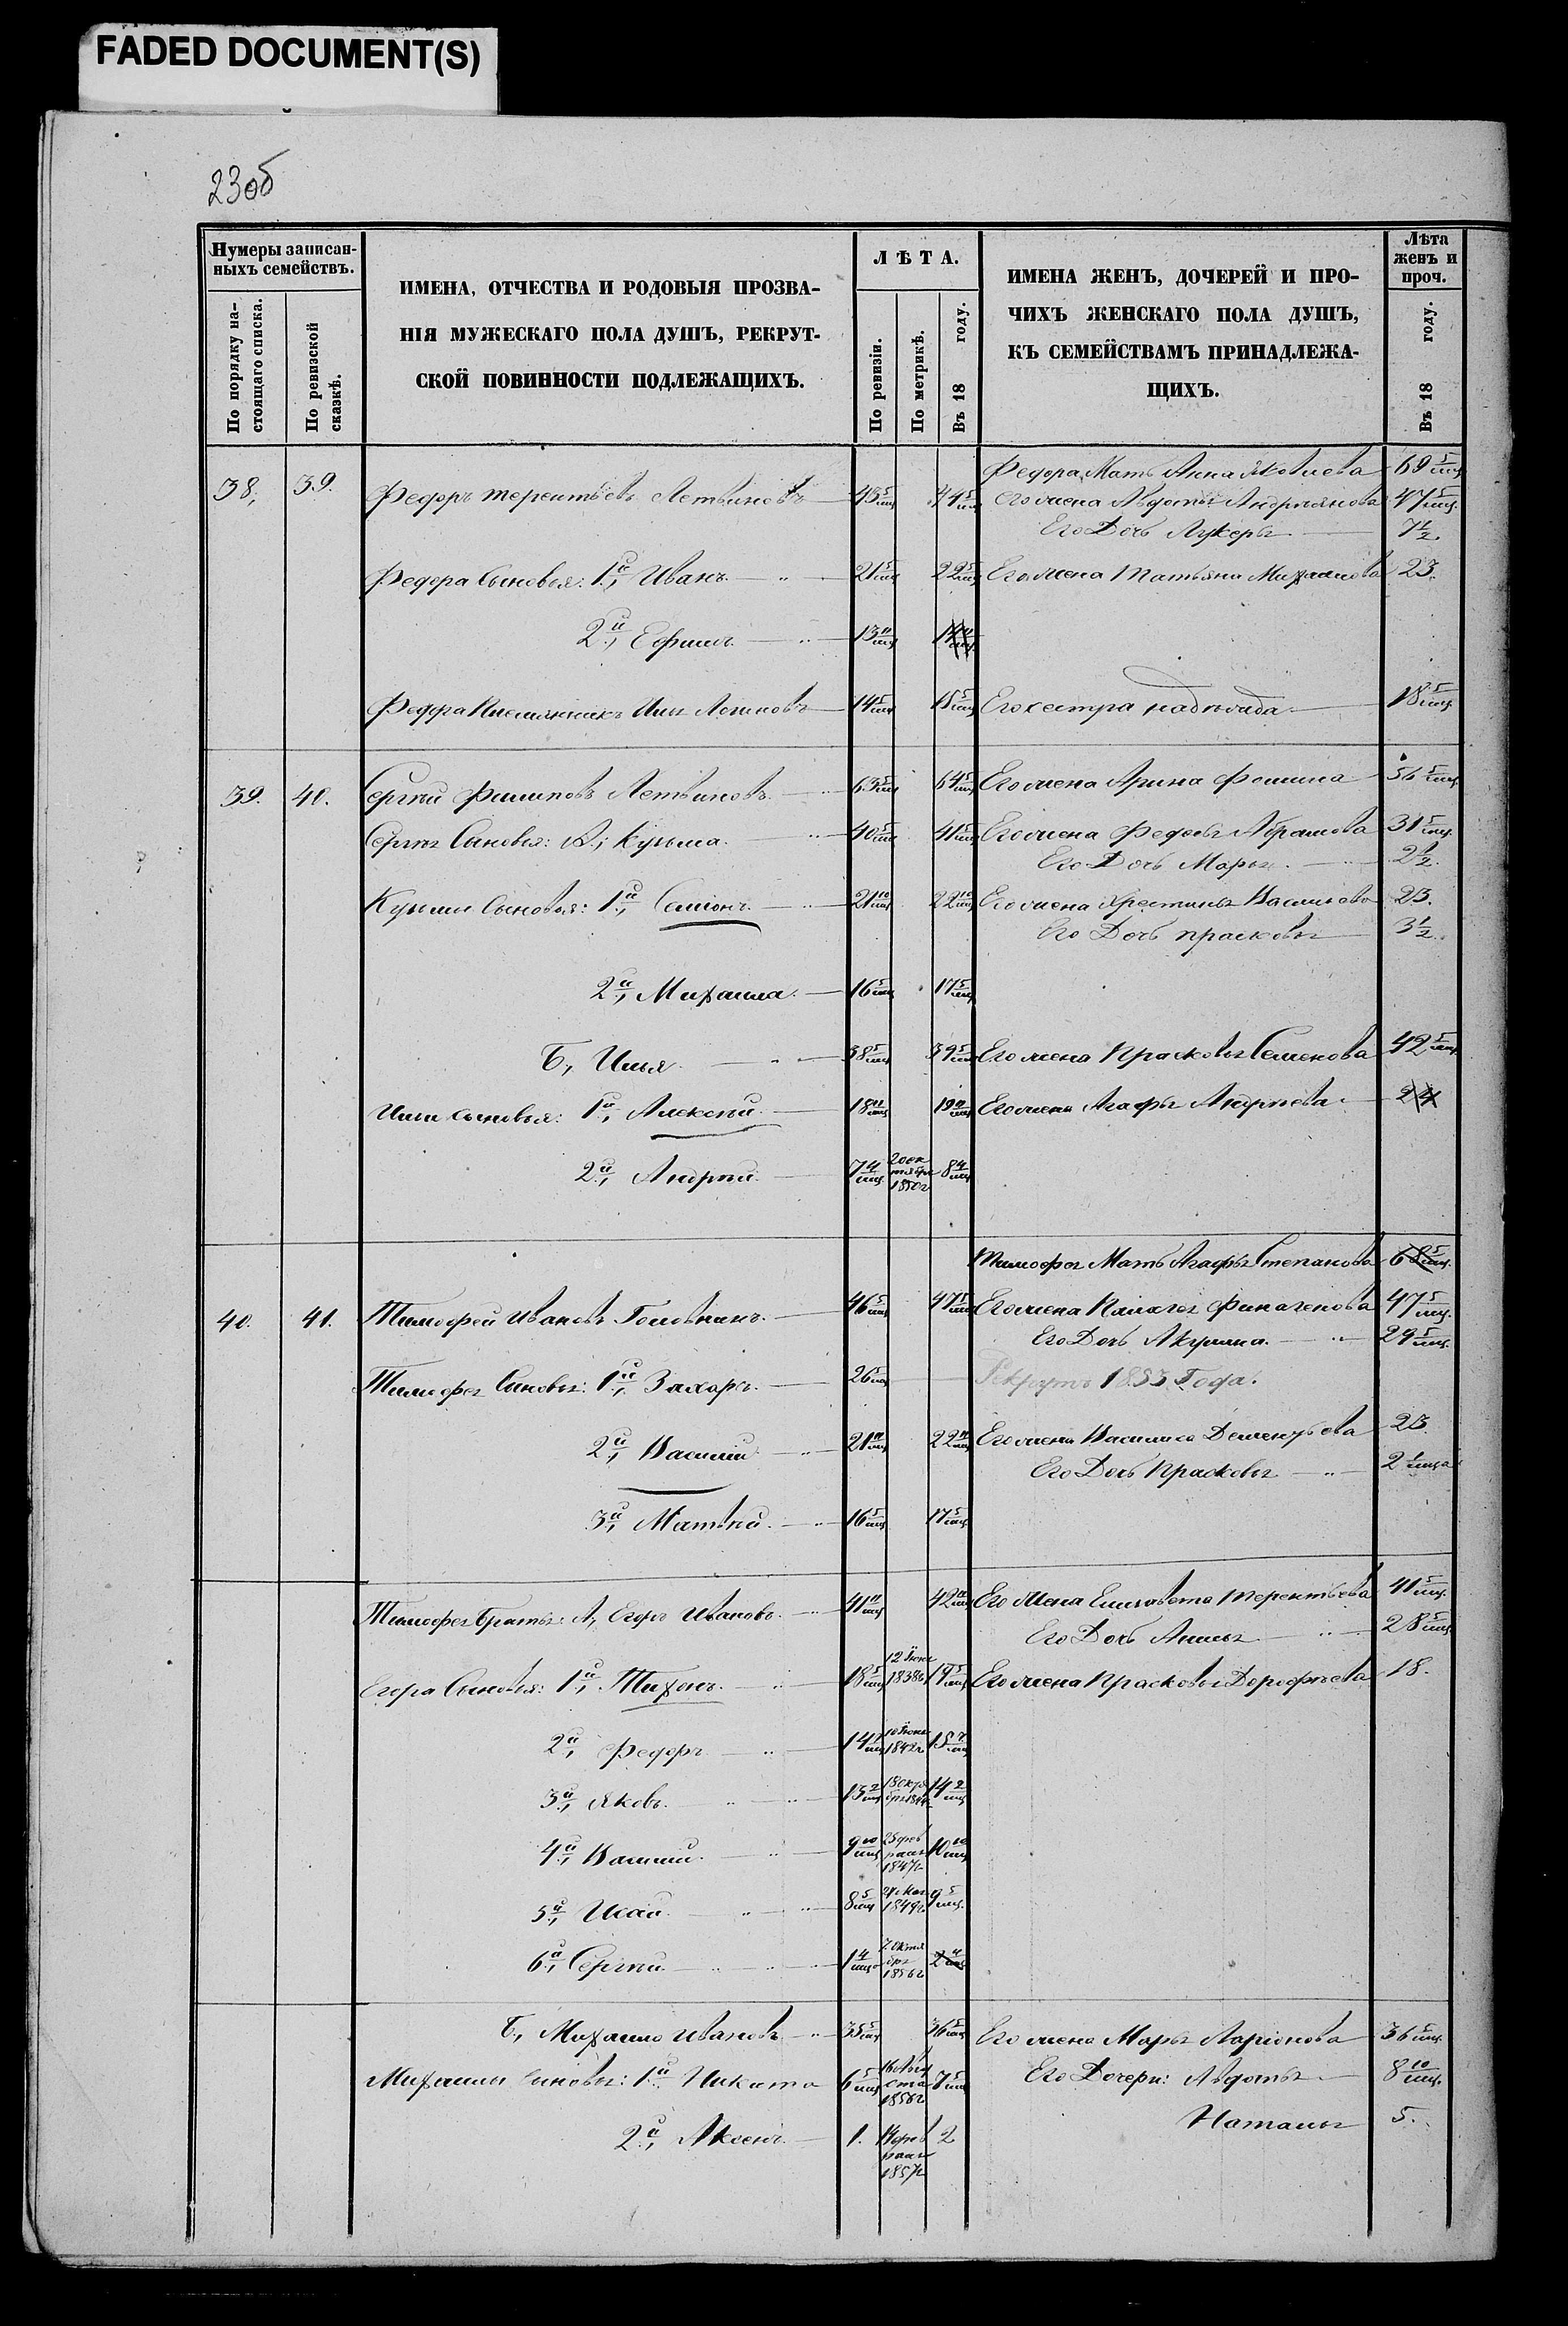 FADED DOCUMENT(S)
23об
Нумеры записан-
ныхъ семействъ.
По порядку на-
стоящаго списка.
По ревизской
сказкѣ.
ИМЕНА, ОТЧЕСТВА И РОДОВЫЯ ПРОЗВА-
НІЯ МУЖЕСКАГО ПОЛА ДУШЪ, РЕКРУТ-
СКОЙ ПОВИННОСТИ ПОДЛЕЖАЩИХЪ.
ЛѢТА.
По ревизіи.
По метрикѣ.
Въ 18 году.
ИМЕНА ЖЕНЪ, ДОЧЕРЕЙ И ПРО-
ЧИХЪ ЖЕНСКАГО ПОЛА ДУШЪ,
КЪ СЕМЕЙСТВАМЪ ПРИНАДЛЕЖА-
ЩИХЪ.
Лѣта
женъ и
проч.
Въ 18 году.
Федора Мать Анна Яковлева 69 5/мц
38, 39. Федоръ Терентьевъ Летвиновъ 43 5/мц 44 5/мц Его жена Авдотья Андріянова 47 5/мц.
Его Дочь Лукерья 7 1/2.
Федора Сыновья: 1й, Иванъ. 21 5/мц 22 5/мц Его жена Татьяна Михайлова 23.
2й, Ефимъ. 13 11/мц
Федора Племянникъ Илья Логиновъ 14 5/мц 15 5/мц Его сестра 18 5/мц.
39. 40. Сергѣй Филиповъ Летвиновъ. 63 5/мц 64 5/мц Его жена Арина Фомина 56 5/мц
Сергѣя Сыновья: А, Кузьма. 40 5/мц 41 5/мц Его жена Федосья Абрамова 31 5/мц.
Его Дочь Марья. 2 1/2.
Кузьмы Сыновья: 1й, Семіонъ. 21 10/мц 22 10/мц Его жена Хрестинья Васильева 23.
Его Дочь Прасковья 3 1/2.
2й, Михайла. 16 5/мц 17 5/мц
Б, Илья. 38 5/мц 39 5/мц Его жена Прасковья Семенова 42 5/мц
Ильи сыновья: 1й, Алексѣй. 18 11/мц 19 11/мц Его жена Агафья Андрѣева 24
2й, Андрѣй. 7 4/мц 20 ок
тября
1850г 8 4/мц
Тимофея Мать Агафья Степанова 68 5/мц.
40. 41. Тимофей Ивановъ Головкинъ. 46 5/мц 47 5/мц Его жена Пелагея Финагенова 47 5/мц.
Его Дочь Акулина. 29 5/мц.
Тимофея Сыновья: 1й, Захаръ. 26 5/мц Рекрутъ 1853 Года.
2й, Василій 21 11/мц 22 11/мц Его жена Василиса Дементьева 23
Его Дочь Прасковья 2 1/мца
3й, Матвѣй. 16 5/мц 17 5/мц
Тимофея Братья: А, Егоръ Ивановъ. 41 11/мц 42 11/мц Его Жена Елизавета Терентьева 41 5/мц.
Его Дочь Анисья 28 5/мц
Егора Сыновья: 1й, Тихонъ. 18 5/мц 12 Іюня
1838г 19 5/мц Его жена Прасковья Дорофѣева 18.
2й, Федоръ 14 7/мц 10 Іюня
1842г 15 7/мц
3й, Яковъ. 13 2/мц 14 2/мц
4й, Василій. 9 10/мц 25 фев
раля
1847г 10 10/мц
5й, Исай. 8 5/мц 1849г 9 5/мц.
6й, Сергѣй. 1 4/мца 7 октя
бря
1856г 2 4/мц
Б, Михайла Ивановъ. 35 5/мц 36 5/мц Его жена Марья Ларіонова 36 5/мц.
Михайлы Сыновья: 1й, Никита 6 5/мц 16 Авгу
ста 7 5/мц Его Дочери: Авдотья 8 10/мц.
2й, Аксенъ. 1. фев
раля
1857г 2 Наталья 5.